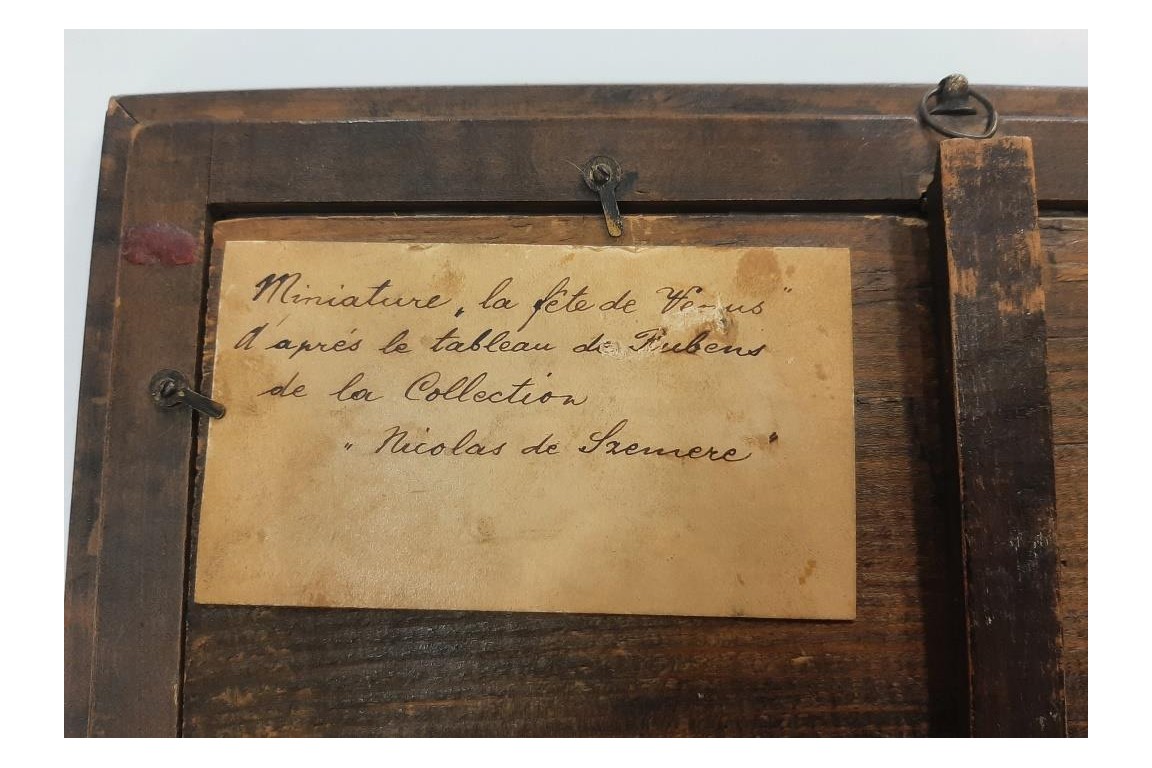 Miniature „la fête de Venus"
d'aprés le tableau de Rubens
de la Collection
„Nicolas de Szemere"